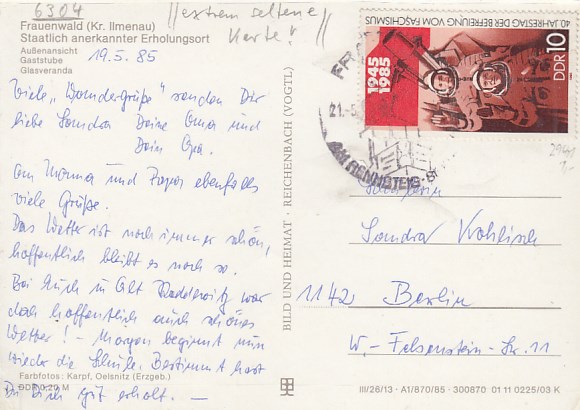 6304
//extrem seltene
Karte! //
Frauenwald (Kr. Ilmenau)
Staatlich anerkannter Erholungsort
Außenansicht
Gaststube
Glasveranda
19.5.85
Viele „Wandergrüße" senden Dir
liebe Sandra Deine Oma und
Dein Opa.
An Mama und Papa ebenfalls
viele Grüße.
Das Wetter ist noch immer schön,
hoffentlich bleibt es noch so.
Bei Euch in Alt war
doch hoffentlich auch schönes
Wetter! – Morgen beginnt nun
wieder die Schule. Bestimmt hast
Du Dich gut erholt. —
Farbfotos: Karpf, Oelsnitz (Erzgeb.)
DDR 0,20 M
BILD UND HEIMAT · REICHENBACH (VOGTL)
40. JAHRESTAG DER BEFREIUNG VOM FASCHISMUS
1945
1985
DDR 10
21.-5
AM RENNSTEIG
Sandra Kohlisch
1142 Berlin
W.-Felsenstein-Str. 11
III/26/13 · A1/870/85 · 300870 01 11 0225/03 K